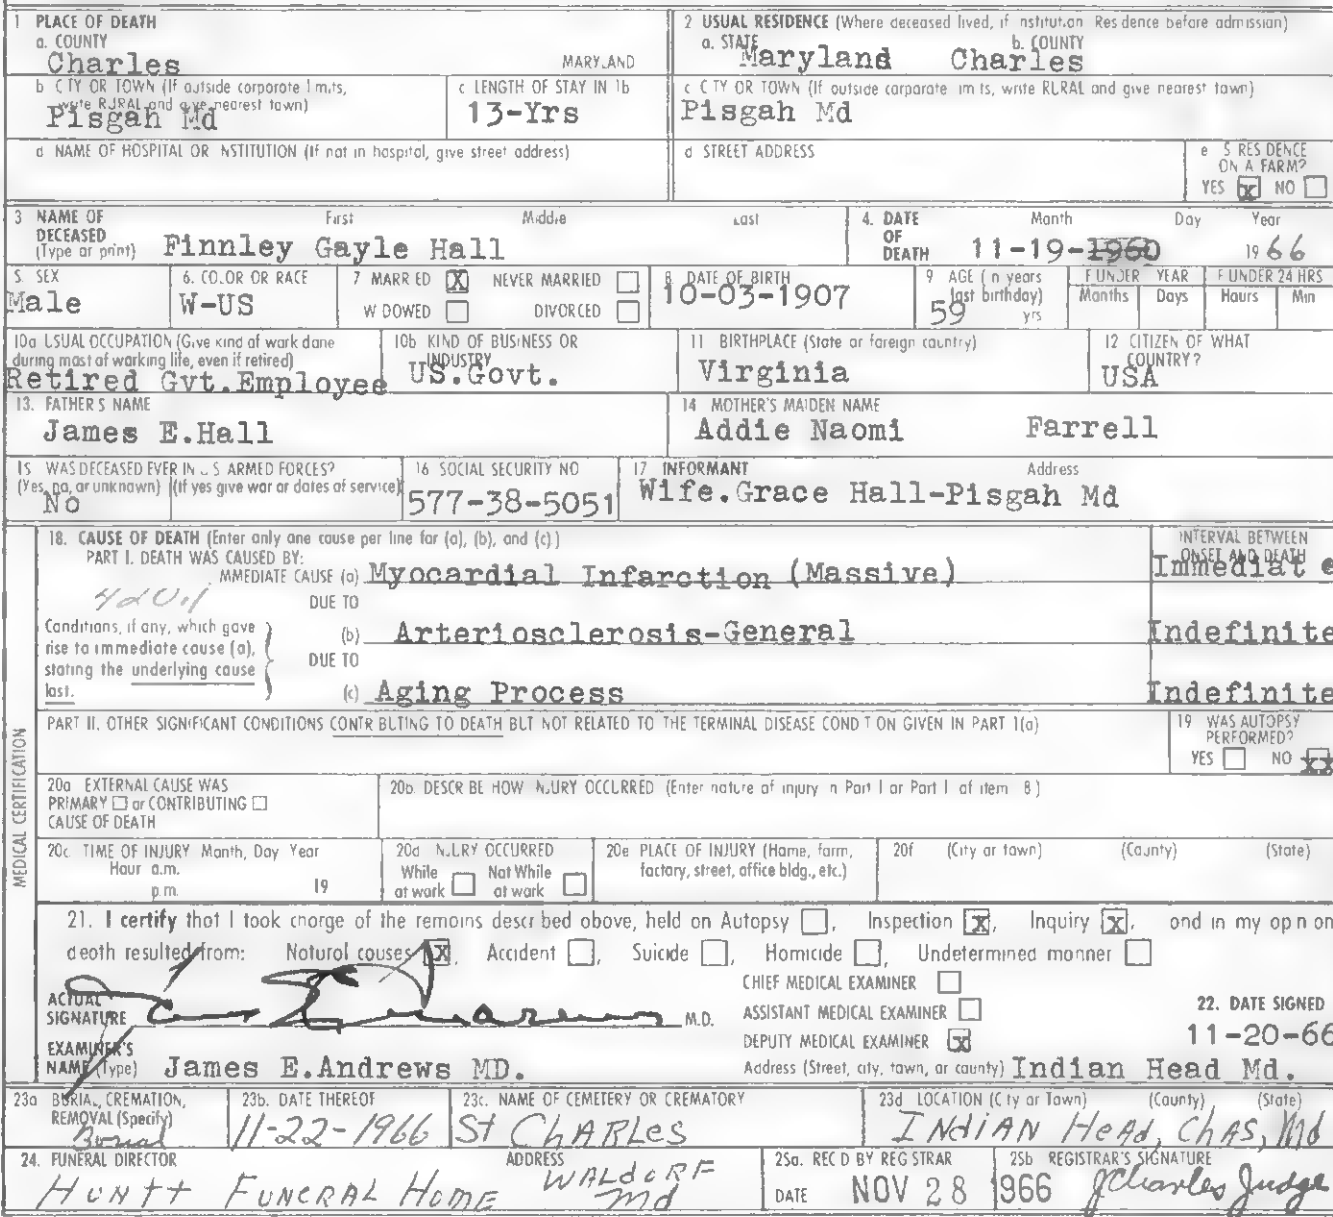 1 PLACE OF DEATH
a. COUNTY
Charles
MARYLAND
2 USUAL RESIDENCE (Where deceased lived, if nstitut.on Res dence before admission)
a. STATE
Maryland
b. COUNTY
Charles
b C TY OR TOWN (If outside corporate l m.ts,
write RURAL and give nearest town)
Pisgah Md
c LENGTH OF STAY IN 1b
13-Yrs
c C TY OR TOWN (If outside corporate im ts, write RURAL and give nearest town)
Pisgah Md
d NAME OF HOSPITAL OR NSTITUTION (If not in hospital, give street address)
d STREET ADDRESS
e S RES DENCE
ON A FARM?
YES x NO
3 NAME OF
DECEASED
(Type or print)
First Middle Last
Finnley Gayle Hall
4. DATE
OF
DEATH
Month Day Year
11-19-1960 1966
5. SEX
Male
6. COLOR OR RACE
W-US
7 MARR ED X NEVER MARRIED
W DOWED DIVORCED
8 DATE OF BIRTH
10-03-1907
9 AGE ( n years
last birthday)
59 yrs
F UNDER YEAR
Months Days
F UNDER 24 HRS
Hours Min
10a USUAL OCCUPATION (Give kind of work done
during most of working life, even if retired)
Retired Gvt.Employee
10b KIND OF BUSINESS OR
INDUSTRY
US.Govt.
11 BIRTHPLACE (State or foreign country)
Virginia
12 CITIZEN OF WHAT
COUNTRY?
USA
13. FATHER S NAME
James E.Hall
14 MOTHER'S MAIDEN NAME
Addie Naomi Farrell
15 WAS DECEASED EVER IN U S ARMED FORCES?
(Yes, no, or unknown) (If yes give war or dates of service)
No
16 SOCIAL SECURITY NO
577-38-5051
17 INFORMANT Address
Wife.Grace Hall-Pisgah Md
MEDICAL CERTIFICATION
18. CAUSE OF DEATH (Enter only one cause per line for (a), (b), and (c))
PART I. DEATH WAS CAUSED BY:
MMEDIATE CAUSE (a) Myocardial Infarction (Massive)
INTERVAL BETWEEN
ONSET AND DEATH
Immediat e
420.1
DUE TO
Conditions, if any, which gave
rise to immediate cause (a),
stating the underlying cause
last.
(b) Arteriosclerosis-General
Indefinite
DUE TO
(c) Aging Process
Indefinite
PART II. OTHER SIGNIFICANT CONDITIONS CONTR BUTING TO DEATH BUT NOT RELATED TO THE TERMINAL DISEASE COND T ON GIVEN IN PART 1(a)
19 WAS AUTOPSY
PERFORMED?
YES NO xx
20a EXTERNAL CAUSE WAS
PRIMARY or CONTRIBUTING
CAUSE OF DEATH
20b. DESCR BE HOW NJURY OCCURRED (Enter nature of injury n Part I or Part I of item 8)
20c. TIME OF INJURY Month, Day Year
Hour a.m.
p.m. 19
20d NJURY OCCURRED
While Not While
at work at work
20e PLACE OF INJURY (Home, farm,
factory, street, office bldg., etc.)
20f (City or town) (County) (State)
21. I certify that I took charge of the remains descr bed above, held on Autopsy , Inspection X, Inquiry X, and in my op n on
death resulted from: Natural causes X, Accident , Suicide , Homicide , Undetermined manner
CHIEF MEDICAL EXAMINER
ACTUAL
SIGNATURE
M.D.
ASSISTANT MEDICAL EXAMINER
DEPUTY MEDICAL EXAMINER X
22. DATE SIGNED
11-20-66
EXAMINER'S
NAME (Type) James E.Andrews MD.
Address (Street, city, town, or county) Indian Head Md.
23a BURIAL, CREMATION,
REMOVAL (Specify)
Burial
23b. DATE THEREOF
11-22-1966
23c. NAME OF CEMETERY OR CREMATORY
St CHARLES
23d LOCATION (C ty or Town) (County) (State)
INdIAN HeAd, ChAS, Md
24. FUNERAL DIRECTOR ADDRESS
HUNTT FUNERAL HOME WALdORF
Md
25a. REC D BY REG STRAR
DATE NOV 28 1966
25b REGISTRAR'S SIGNATURE
J Charles Judge